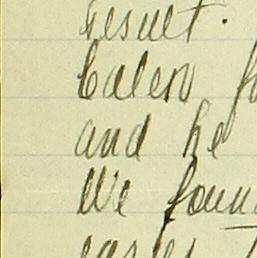 result.
Calen
and he
We foun